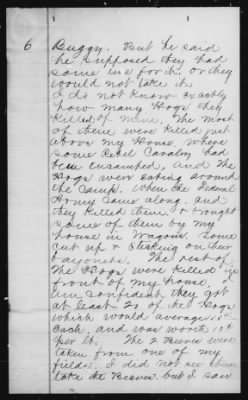 6
Buggy. But he said
he supposed they had
some use for it. or they
would not take it.
I do not know exactly
how many Hogs they
killed of mine. The most
of them were killed just
above my House. where
some Rebel Cavalry had
been encamped, and The
Hogs were eating around
the Camp. When the Federal
Army came along. and
they killed them. & brought
some of them by my
house in Wagons, Some
cut up & sticking on their
bayonets. The rest of
The Hogs were killed in
front of my house.
am confident they got
at least 20 of the Hogs
which would average
each, and was worth 10¢
per lb. The 2 Beeves were
taken from one of my
fields. I did not see them
take the Beeves but I saw